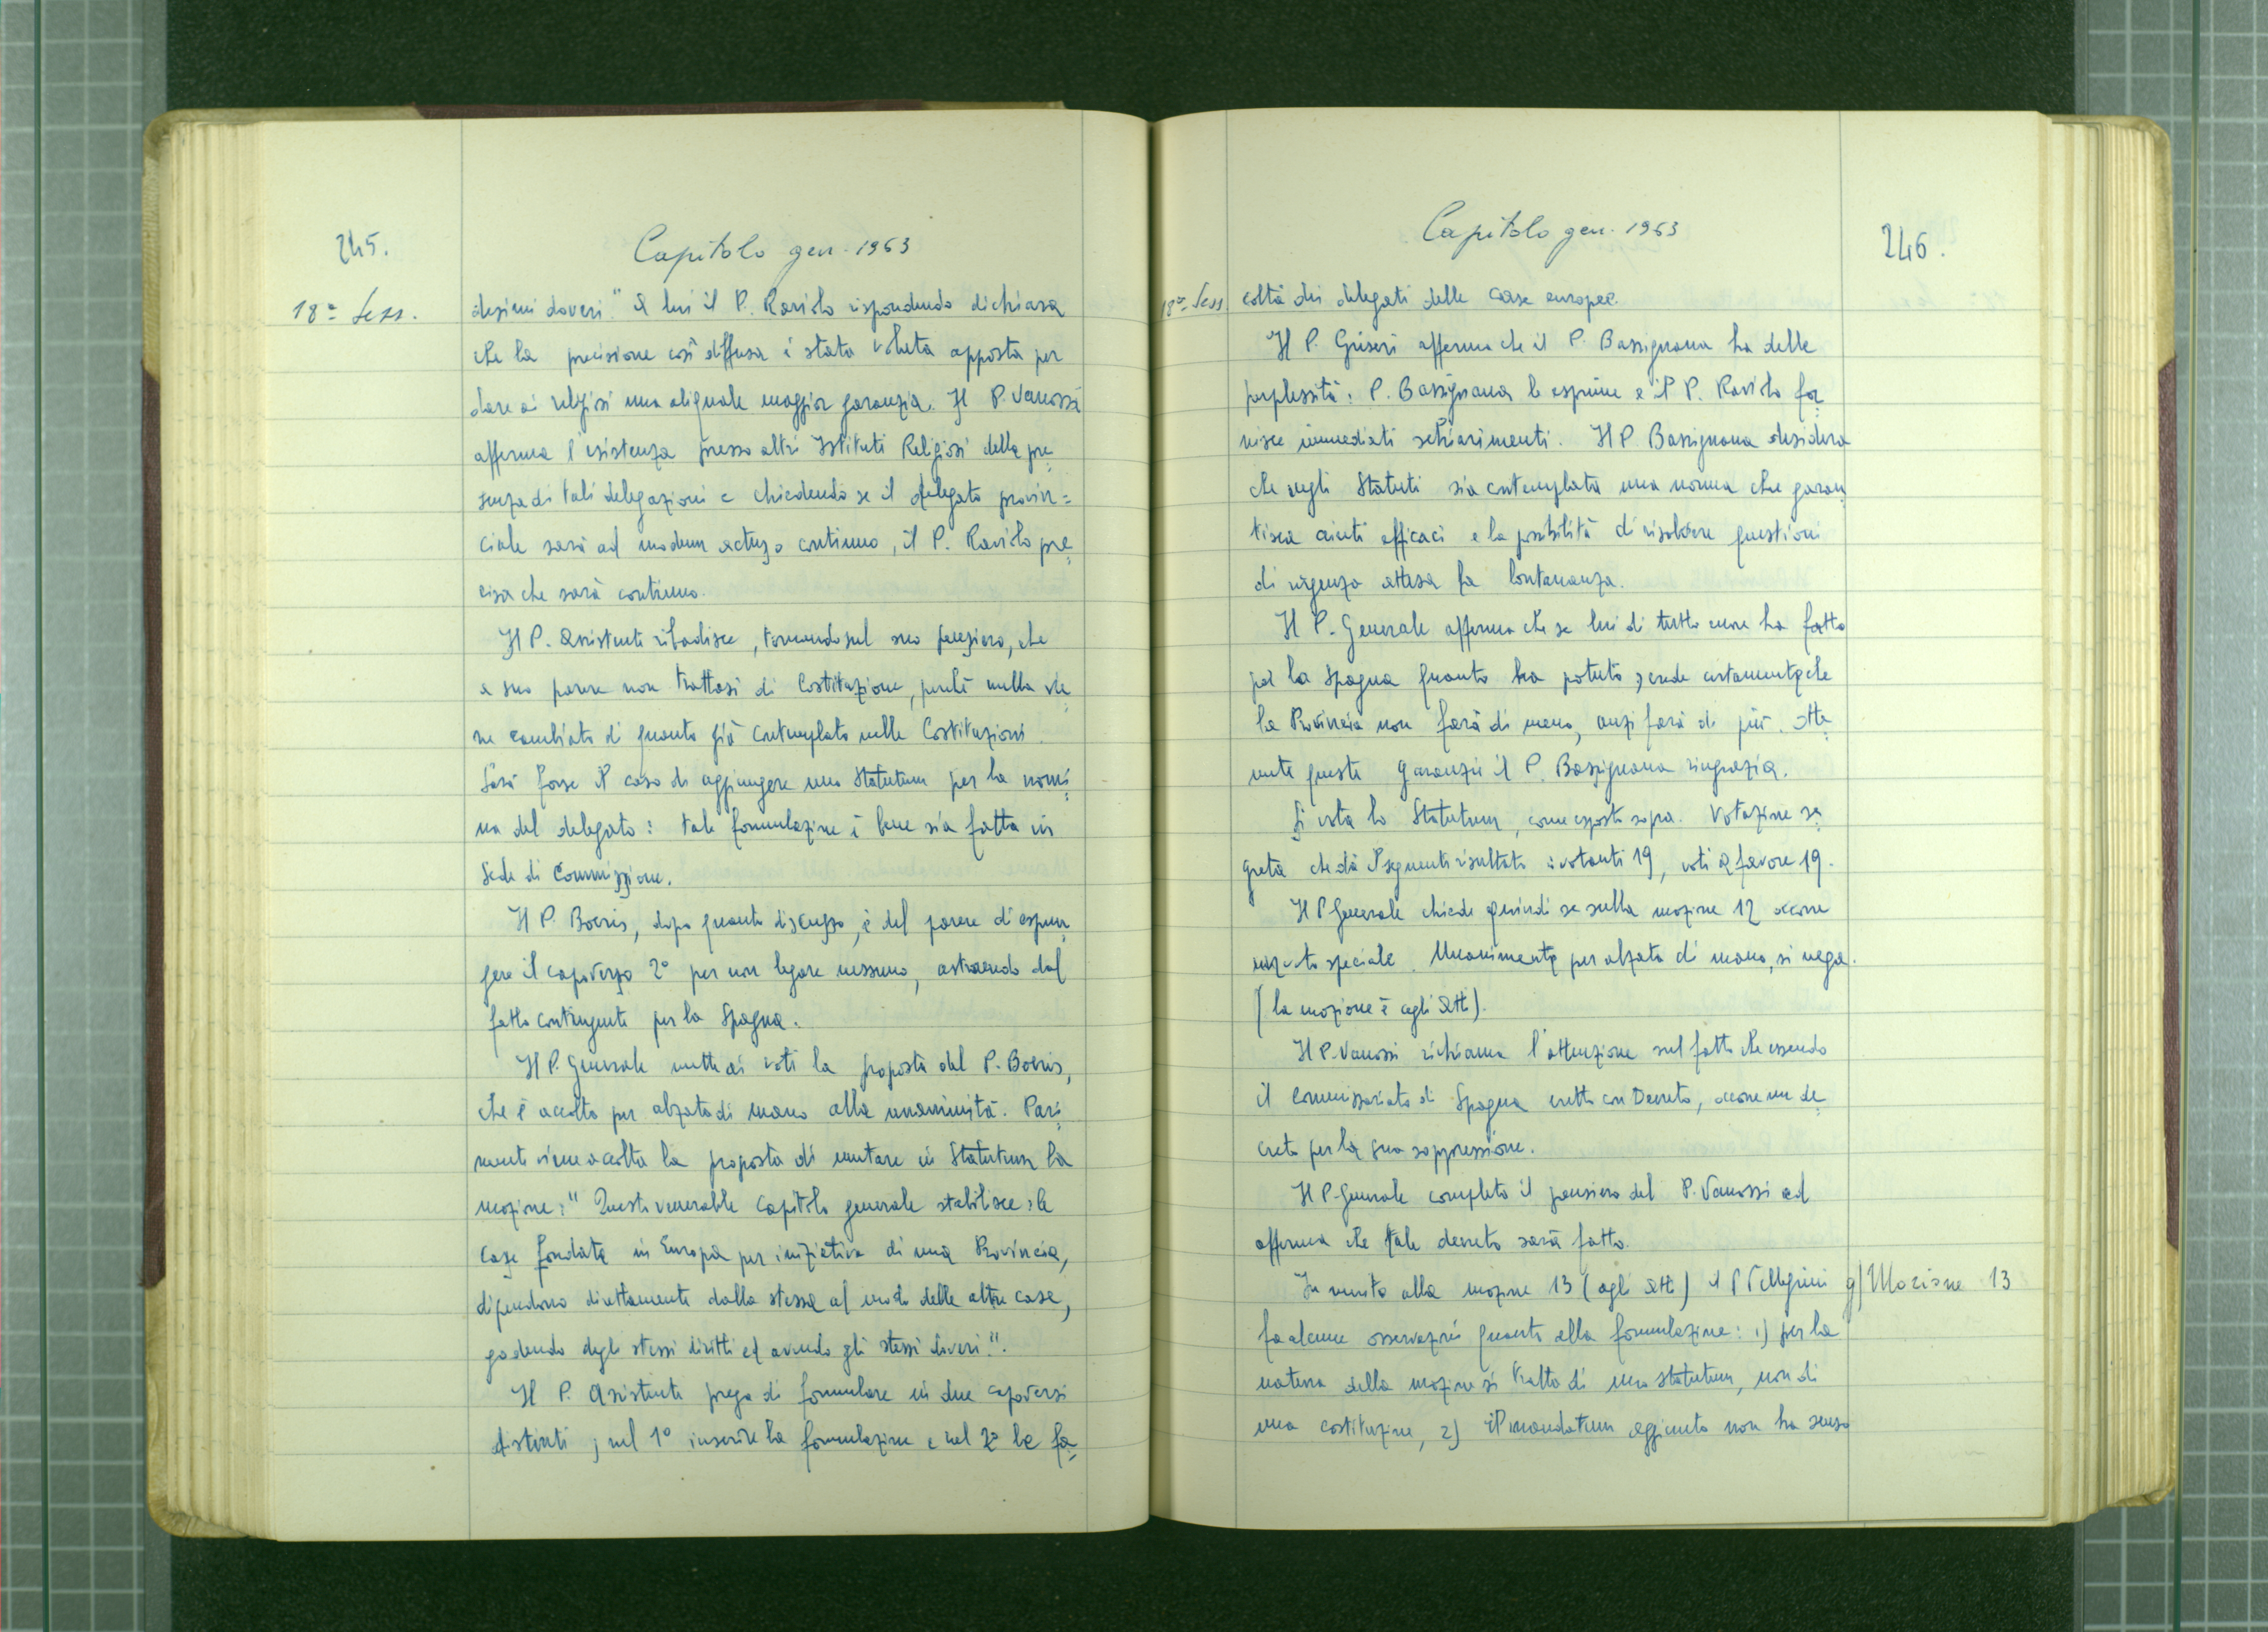 245.
Capitolo gen. 1963
18ª Sess.
desimi doveri." A lui il P. Raviolo rispondendo dichiara
che la precisione così diffusa è stata voluta apposta per
dare ai religiosi una aliquale maggior garanzia. Il P. Vanossi
afferma l'esistenza presso altri Istituti Religiosi della pre=
senza di tali delegazioni e chiedendo se il delegato provin=
ciale sarà ad modum actus o continuo, il P. Raviolo pre=
cisa che sarà continuo.
Il P. Assistente ribadisce, tornando sul suo pensiero, che
a suo parere non trattasi di Costituzione, perché nulla vie=
ne cambiato di quanto già contemplato nelle Costituzioni.
Sarà forse il caso di aggiungere uno Statutum per la nomi=
na del delegato: tale formulazione è bene sia fatta in
sede di Commissione.
Il P. Boeris, dopo quanto discusso, è del parere di espun=
gere il capoverso 2° per non legare nessuno, astraendo dal
fatto contingente per la Spagna.
Il P. Generale mette ai voti la proposta del P. Boeris,
che è accolta per alzata di mano alla unanimità. Pari=
menti viene accolta la proposta di mutare in Statutum la
mozione: "Questo venerabile Capitolo generale stabilisce: le
Case fondate in Europa per iniziativa di una Provincia,
dipendono direttamente dalla stessa al modo delle altre case,
godendo degli stessi diritti ed avendo gli stessi doveri".
Il P. Assistente prega di formulare in due capoversi
distinti; nel 1° inserire la formulazione e nel 2° le fa=
Capitolo gen. 1963
246.
18ª Sess.
coltà dei delegati delle case europee.
Il P. Griseri afferma che il P. Bassignana ha delle
perplessità: P. Bassignana le esprime e il P. Raviolo for=
nisce immediati schiarimenti. Il P. Bassignana desidera
che negli Statuti sia contemplata una norma che garan=
tisca aiuti efficaci e la possibilità di risolvere questioni
di urgenza attesa la lontananza.
Il P. Generale afferma che se lui di tutto cuore ha fatto
per la Spagna quanto ha potuto, crede certamente che
la Provincia non farà di meno, anzi farà di più. Otte=
nute queste garanzie il P. Bassignana ringrazia.
Si vota lo Statutum, come esposto sopra. Votazione se=
greta che dà i seguenti risultati: votanti 19, voti a favore 19.
Il P Generale chiede quindi se sulla mozione 12 occorre
speciale. Unanimente per alzata di mano, si nega.
(la mozione è agli Atti).
Il P. Vanossi richiama l'attenzione sul fatto che essendo
il Commissariato di Spagna eretto con Decreto, occorre un de=
creto per la sua soppressione.
Il P. Generale completa il pensiero del P. Vanossi ed
afferma che tale decreto sarà fatto.
In merito alla mozione 13 (agli Atti) il P Pellegrini
g) Mozione 13
fa alcune osservazioni quanto alla formulazione: 1) per la
natura della mozione si tratta di uno statutum, non di
una costituzione, 2) il mandatum aggiunto non ha senso